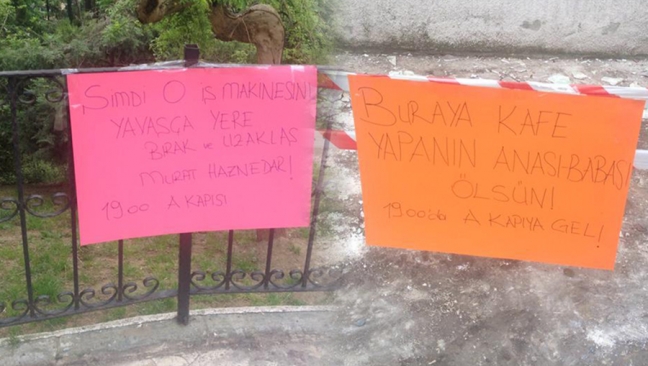 ŞİMDİ O İŞ MAKİNESİNİ
YAVAŞÇA YERE
BRAK ve UZAKLAŞ
MURAT HAZNEDAR!
1900 A KAPISI
BURAYA KAFE
YAPANIN ANASI-BABASI
ÖLSÜN!
19.00'da A KAPIYA GEL!